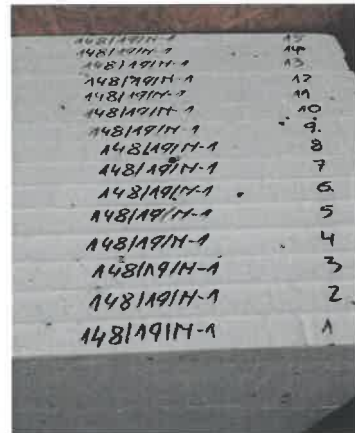 148/19/M-1 15
148/19/M-1 14
148/19/M-1 13
148/19/M-1 12
148/19/M-1 11
148/19/M-1 10
148/19/M-1 9.
148/19/M-1 8
148/19/M-1 7
148/19/M-1 6
148/19/M-1 5
148/19/M-1 4
148/19/M-1 3
148/19/M-1 2
148/19/M-1 1